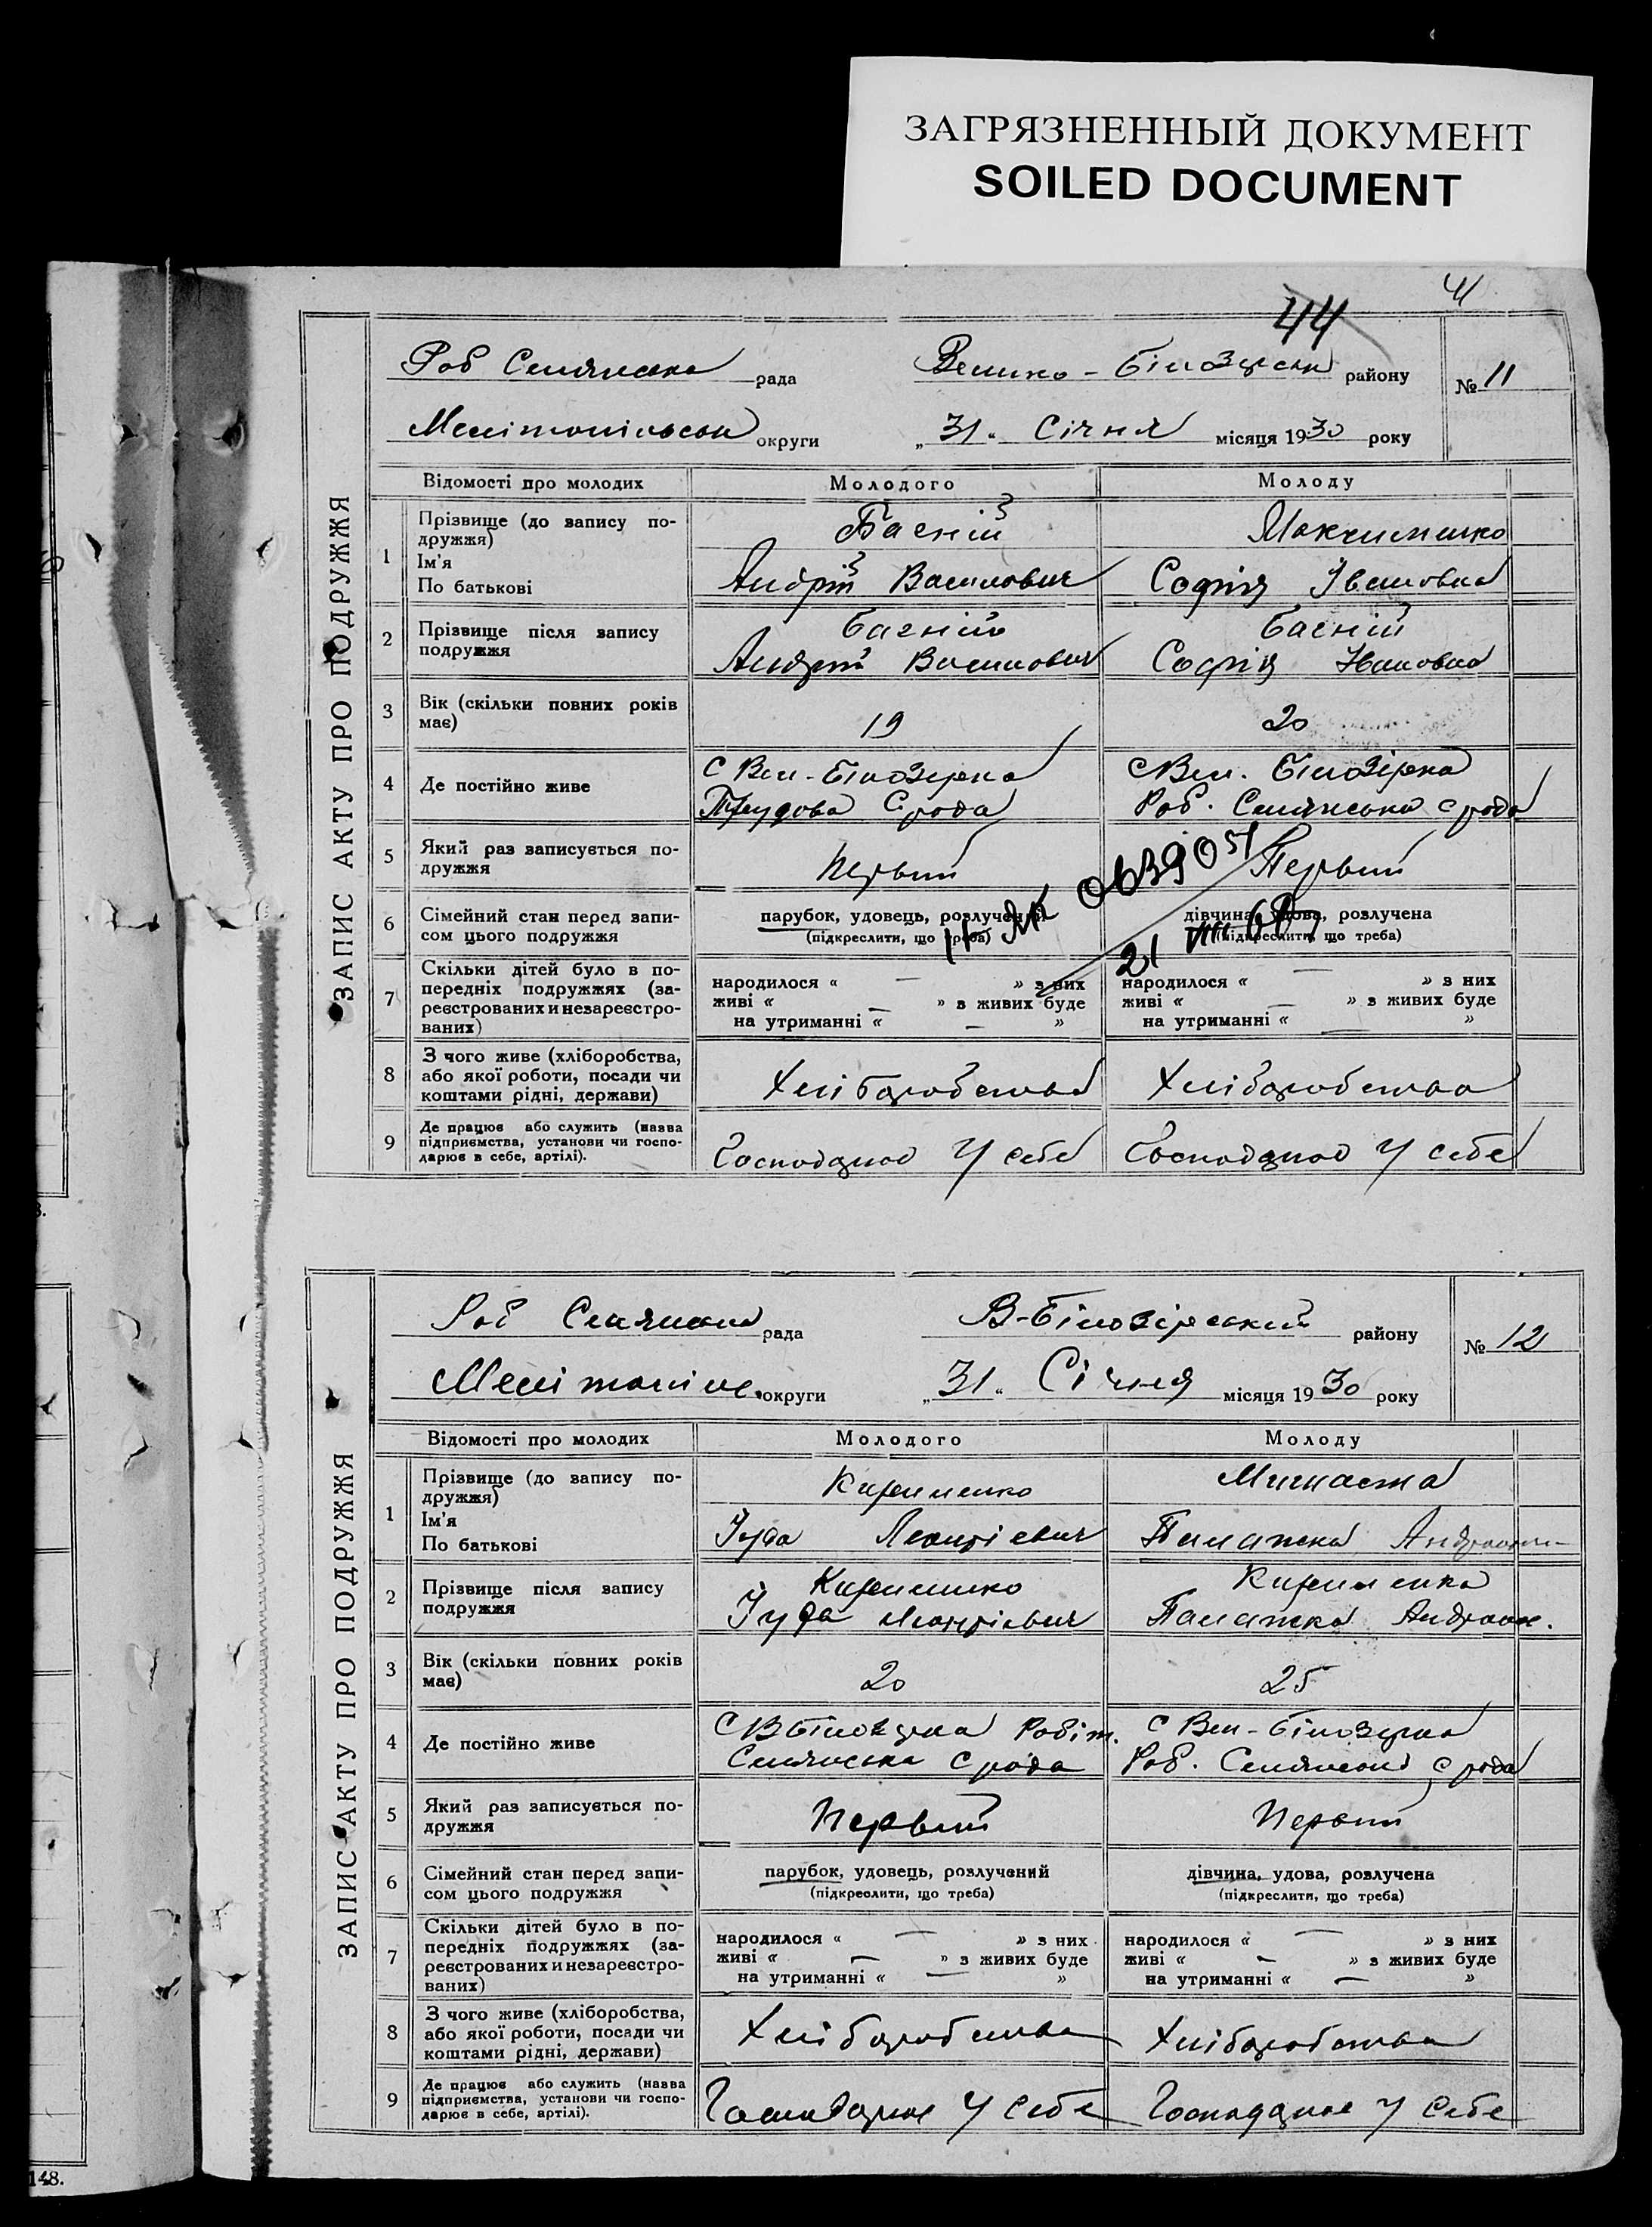 ЗАГРЯЗНЕННЫЙ ДОКУМЕНТ
SOILED DOCUMENT
41
44
Роб Селянська рада Велико-Білозірськ району № 11
Мелітопільськ округи „31“ Січня місяця 1930 року
ЗАПИС АКТУ ПРО ПОДРУЖЖЯ
Відомості про молодих Молодого Молоду
1 Прізвище (до запису по-
дружжя) Багній Максименко
Ім'я
По батькові Андрій Васильович Софія Івановна
2 Прізвище після запису
подружжя Багній Багній
Андрій Васильович Софія Івановна
3 Вік (скільки повних років
має) 19 20
4 Де постійно живе С Вел-Білозірка С Вел. Білозірка
Трудова С рада Роб. Селянська с рада
5 Який раз записується по-
дружжя Первий Первий
6 Сімейний стан перед запи-
сом цього подружжя парубок, удовець, розлучений дівчина, удова, розлучена
(підкреслити, що треба) (підкреслити, що треба)
21 VIII
7 Скільки дітей було в по-
передніх подружжях (за-
реєстрованих и незареєстро-
ваних)
народилося « — » з них народилося « — » з них
живі « — » з живих буде живі « » з живих буде
на утриманні « — » на утриманні « — »
8 З чого живе (хліборобства,
або якої роботи, посади чи
коштами рідні, держави) Хліборобства Хліборобства
9 Де працює або служить (назва
підприємства, установи чи госпо-
дарює в себе, артілі). Господарює У себе Господарює У себе
Роб Селянська рада В-Білозірський району № 12
Мелітопільс. округи „31“ Січня місяця 1930 року
ЗАПИС АКТУ ПРО ПОДРУЖЖЯ
Відомості про молодих Молодого Молоду
1 Прізвище (до запису по-
дружжя) Кириленко
Ім'я
По батькові Іуда Леонтієвич Палажка
2 Прізвище після запису
подружжя Кириленко Кириленка
Іуда Леонтієвич Палажка
3 Вік (скільки повних років
має) 20 25
4 Де постійно живе С В Білозірка Робіт. С Вел-Білозірка
Селянська С рада Роб. Селянської с рада
5 Який раз записується по-
дружжя Первий Первий
6 Сімейний стан перед запи-
сом цього подружжя парубок, удовець, розлучений дівчина, удова, розлучена
(підкреслити, що треба) (підкреслити, що треба)
7 Скільки дітей було в по-
передніх подружжях (за-
реєстрованих и незареєстро-
ваних)
народилося « — » з них народилося « — » з них
живі « — » з живих буде живі « — » з живих буде
на утриманні « — » на утриманні « — »
8 З чого живе (хліборобства,
або якої роботи, посади чи
коштами рідні, держави) Хліборобства Хліборобства
9 Де працює або служить (назва
підприємства, установи чи госпо-
дарює в себе, артілі). Господарює У себе Господарює У себе
148.